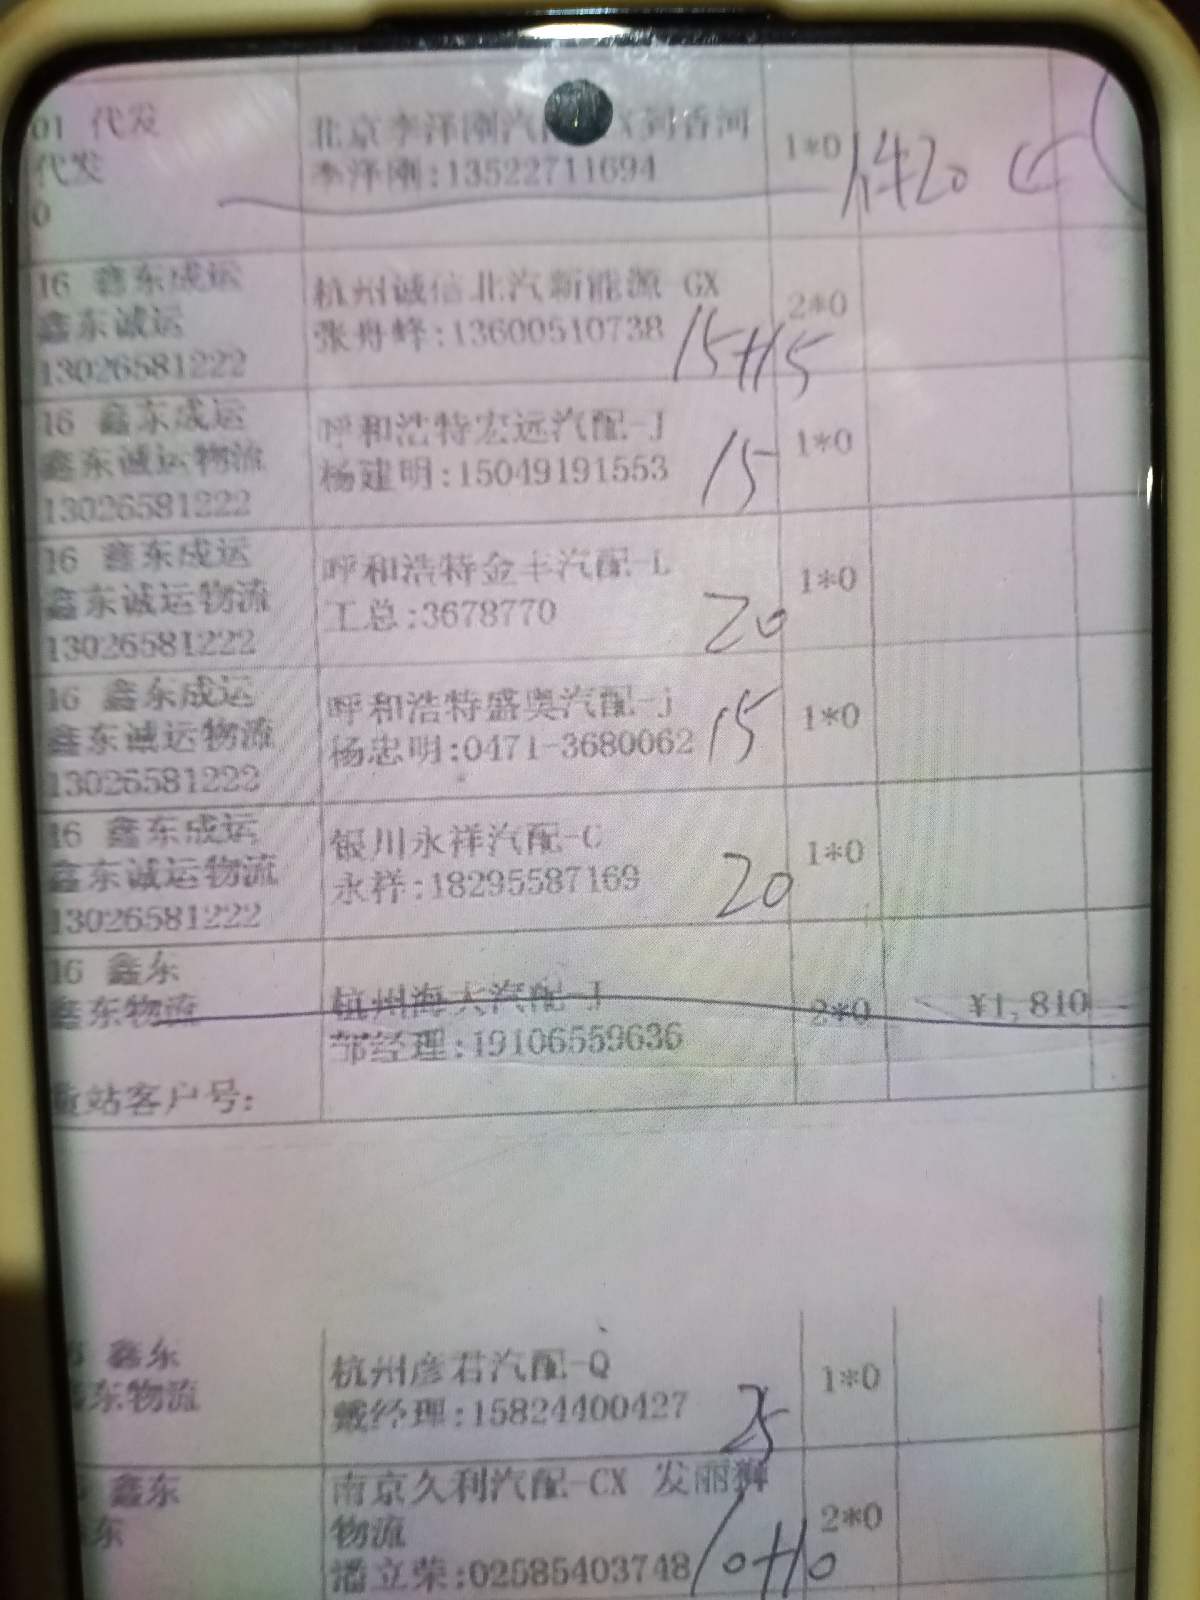 01 代发
代发
0
北京李泽刚汽
到香河
李泽刚:13522711694
1*0
1420
16 鑫东成运
鑫东诚运
13026581222
杭州诚信北汽新能源 GX
张舟峰:13600510738
2*0
15+15
16 鑫东成运
鑫东诚运物流
13026581222
呼和浩特宏远汽配-J
杨建明:15049191553
15
1*0
16 鑫东成运
鑫东诚运物流
13026581222
呼和浩特金丰汽配-L
工总:3678770
20
1*0
16 鑫东成运
鑫东诚运物流
13026581222
呼和浩特盛奥汽配-j
杨忠明:0471-3680062
15
1*0
16 鑫东成运
鑫东诚运物流
13026581222
银川永祥汽配-C
永祥:18295587169
20
1*0
16 鑫东
鑫东物流
站客户号:
杭州海大汽配-J
邹经理:19106559636
2*0
¥1,810
鑫东
东物流
杭州彦君汽配-Q
戴经理:15824400427
25
1*0
鑫东
东
南京久利汽配-CX 发丽狮
物流
潘立荣:02585403748
10+10
2*0